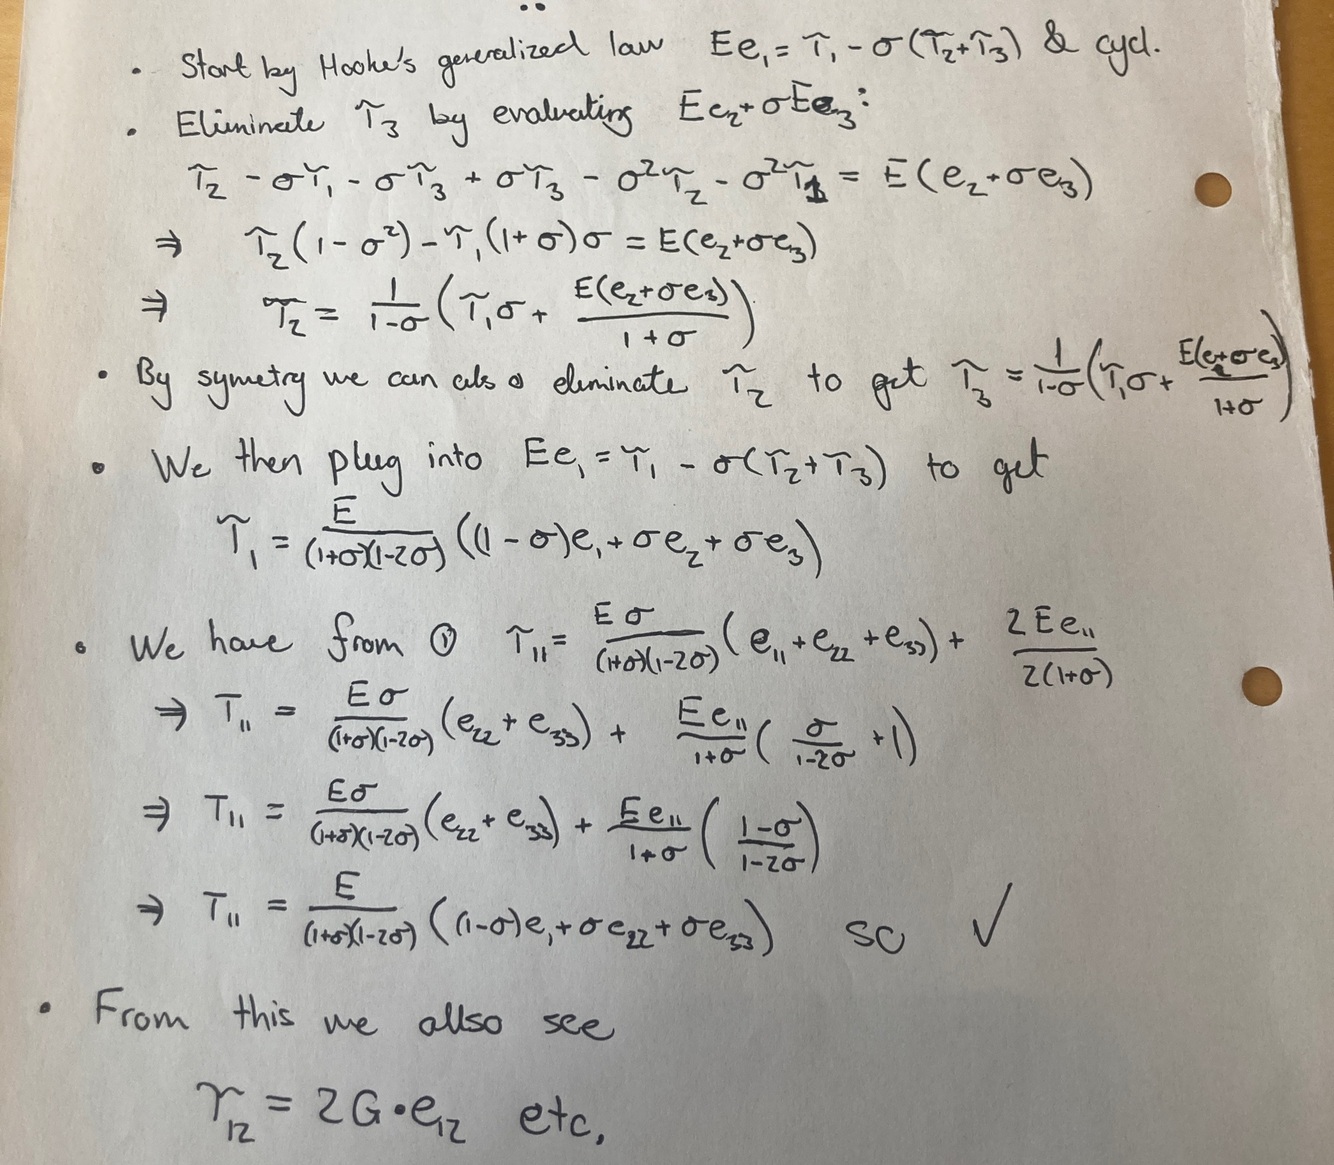 • Start by Hooke's generalized law Ee₁ = τ₁ - σ(τ₂+τ₃) & cycl.
• Eliminate τ₃ by evaluating Ee₂+σEe₃:
τ₂ - στ₁ - στ₃ + στ₃ - σ²τ₂ - σ²τ₁ = E(e₂+σe₃)
⇒ τ₂(1-σ²) - τ₁(1+σ)σ = E(e₂+σe₃)
⇒ τ₂ = 1/(1-σ) (τ₁σ + E(e₂+σe₃)/(1+σ))
• By symetry we can also eliminate τ₂ to get τ₃ = 1/(1-σ) (τ₁σ + E(e₂+σe₃)/(1+σ))
• We then plug into Ee₁ = τ₁ - σ(τ₂+τ₃) to get
τ₁ = E/((1+σ)(1-2σ)) ((1-σ)e₁ + σe₂ + σe₃)
• We have from ① τ₁₁ = Eσ/((1+σ)(1-2σ)) (e₁₁+e₂₂+e₃₃) + 2Ee₁₁/(2(1+σ))
⇒ τ₁₁ = Eσ/((1+σ)(1-2σ)) (e₂₂+e₃₃) + Ee₁₁/(1+σ) (σ/(1-2σ) + 1)
⇒ τ₁₁ = Eσ/((1+σ)(1-2σ)) (e₂₂+e₃₃) + Ee₁₁/(1+σ) ((1-σ)/(1-2σ))
⇒ τ₁₁ = E/((1+σ)(1-2σ)) ((1-σ)e₁ + σe₂₂ + σe₃₃) so ✓
• From this we allso see
τ₁₂ = 2G•e₁₂ etc.